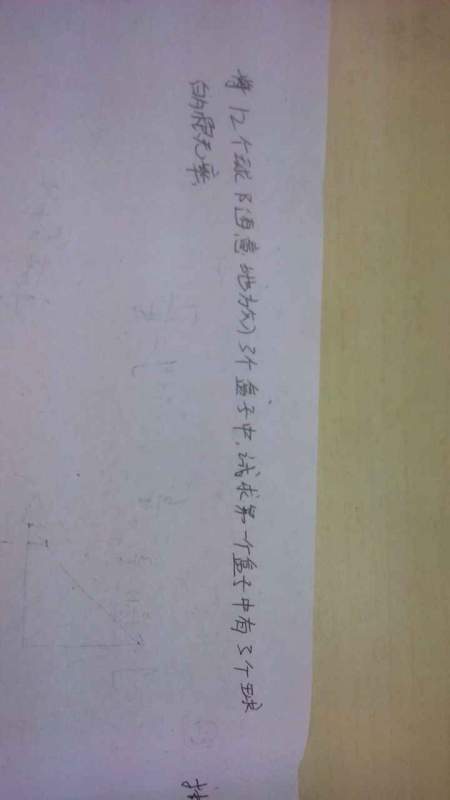 将12个球随意地放入3个盒子中,试求第一个盒子中有3个球
的概率